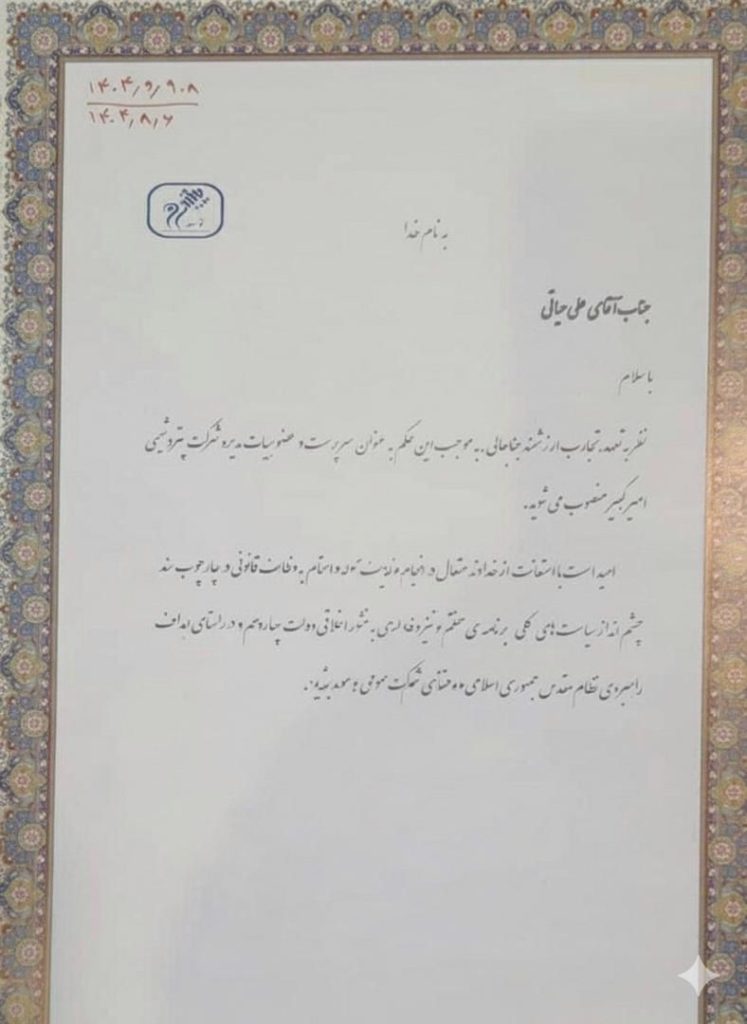 ۱۴۰۴/۶/۹۰۸
۱۴۰۴/۸/۶
به نام خدا
جناب آقای علی حیاتی
با سلام
نظر به تعهد، تجارب ارزشمند جنابعالی، به موجب این حکم به عنوان سرپرست و عضو هیات مدیره شرکت پتروشیمی
امیرکبیر منصوب می شوید.
امید است با استعانت از خداوند متعال در انجام به وظائف قانونی در چارچوب سند
چشم انداز سیاست های کلی برنامه ی هفتم و نیز به منشور اخلاقی دولت چهاردهم و در راستای اهداف
راهبردی نظام مقدس جمهوری اسلامی شرکت